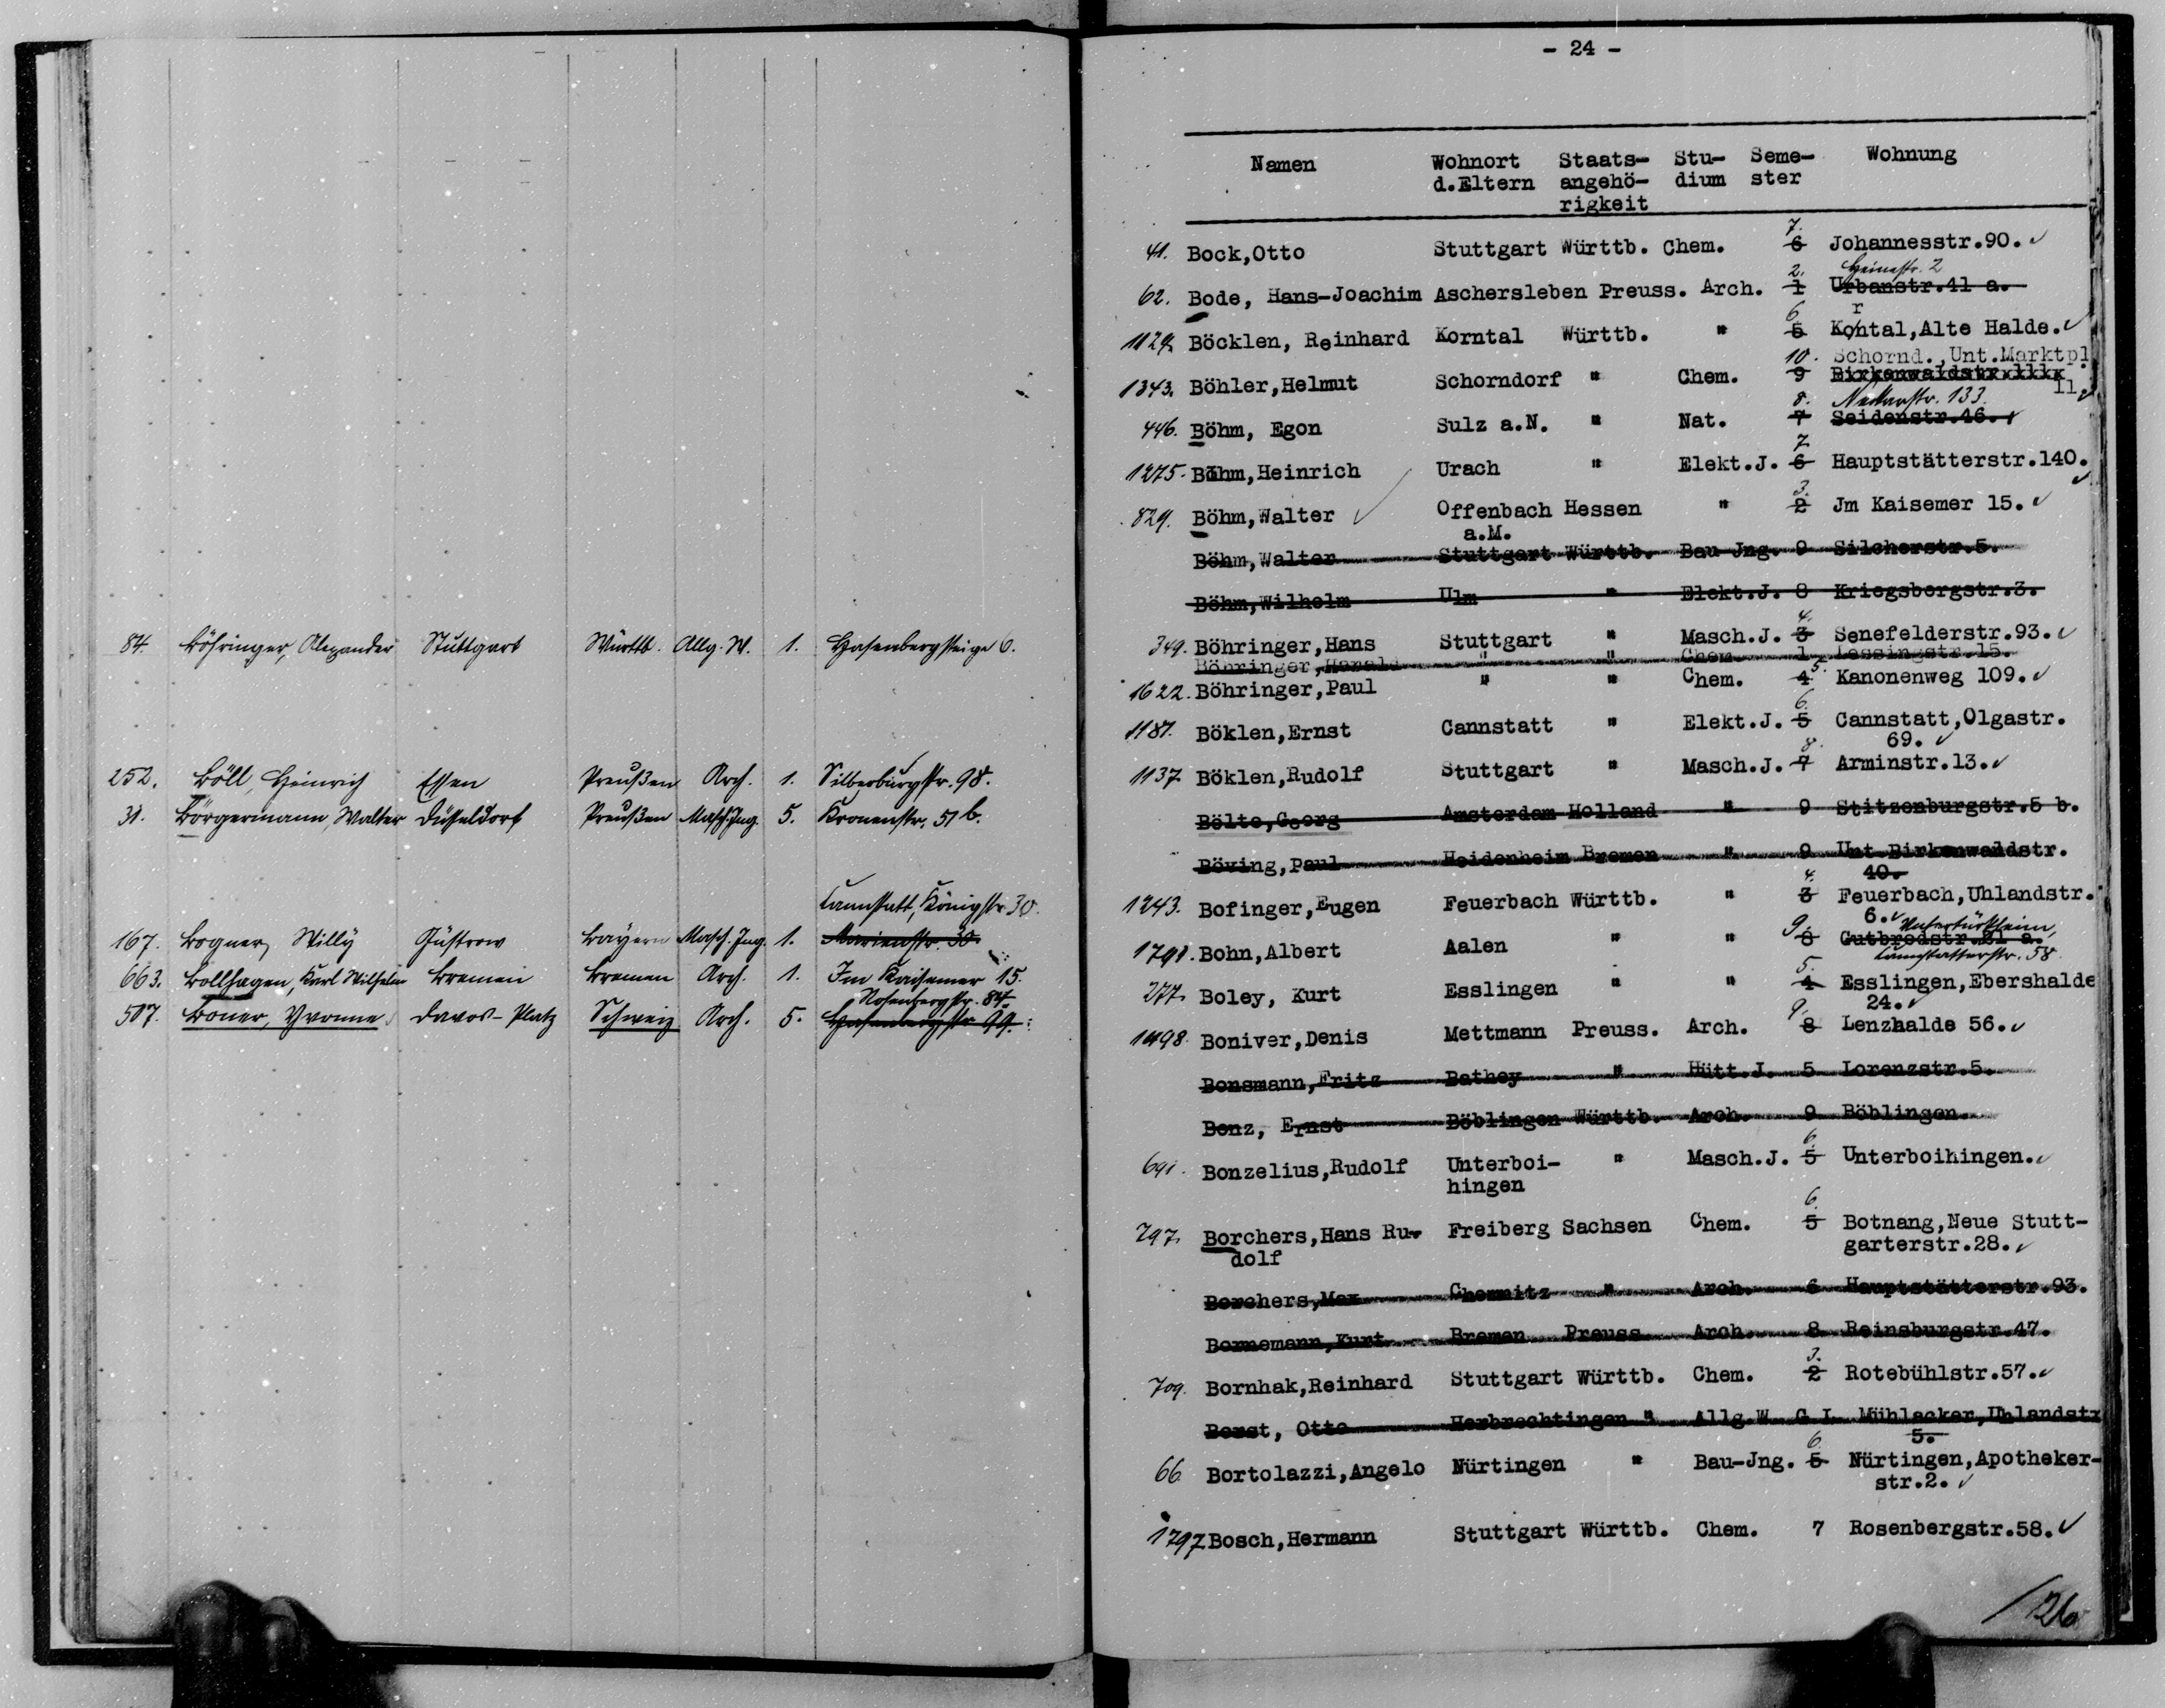 84. Böhringer, Alexander Stuttgart Württb. Allg. W. 1. Hasenbergsteige 6.
252. Böll, Heinrich Essen Preußen Arch. 1. Silberburgstr. 98.
31. Börgermann, Walter Düsseldorf Preußen Masch.Ing. 5. Kronenstr. 51 b.
Cannstatt, Königstr. 30.
167. Bogner, Willy Güstrow Bayern Masch. Ing. 1. Marienstr. 30
663. Bollhagen, Karl Wilhelm Bremen Bremen Arch. 1. Im Kaisemer 15.
Rosenbergstr. 84
507. Boner, Yvonne Davos-Platz Schweiz Arch. 5. Hasenbergstr. 99.
- 24 -
Namen Wohnort Staats- Stu- Seme- Wohnung
d.Eltern angehö- dium ster
rigkeit
7.
41. Bock,Otto Stuttgart Württb. Chem. 6 Johannesstr.90.
2. Heinestr. 2
62. Bode, Hans-Joachim Aschersleben Preuss. Arch. 1 Urbanstr.41 a.
6. r
1129. Böcklen, Reinhard Korntal Württb. " 5 Kontal,Alte Halde.
10. Schornd.,Unt.Marktpl.
1343. Böhler,Helmut Schorndorf " Chem. 9 Birkenwaldstr.
11.
8. Neckarstr. 133.
446. Böhm, Egon Sulz a.N. " Nat. 7 Seidenstr.46.
7.
1275. Böhm,Heinrich Urach " Elekt.J. 6 Hauptstätterstr.140.
3.
829. Böhm,Walter Offenbach Hessen " 2 Jm Kaisemer 15.
a.M.
Böhm,Walter Stuttgart Württb. Bau Jng. 9 Silcherstr.5.
Böhm,Wilhelm Ulm " Elekt.J. 8 Kriegsbergstr.3.
4.
349. Böhringer,Hans Stuttgart " Masch.J. 3 Senefelderstr.93.
Böhringer,Harald " " Chem. 1 Lessingstr.15.
5.
1622. Böhringer,Paul " " Chem. 4 Kanonenweg 109.
6.
1187. Böklen,Ernst Cannstatt " Elekt.J. 5 Cannstatt,Olgastr.
69.
8.
1137. Böklen,Rudolf Stuttgart " Masch.J. 7 Arminstr.13.
Bölte,Georg Amsterdam Holland " 9 Stitzenburgstr.5 b.
Böving,Paul Heidenheim Bremen " 9 Unt.Birkenwaldstr.
40.
4.
1243. Bofinger,Eugen Feuerbach Württb. " 3 Feuerbach,Uhlandstr.
6.
9. Untertürkheim,
1798. Bohn,Albert Aalen " " 8 Gutbrodstr.21 a.
Cannstatterstr. 58
5.
277. Boley, Kurt Esslingen " " 4 Esslingen,Ebershalde
24.
9.
1498. Boniver,Denis Mettmann Preuss. Arch. 8 Lenzhalde 56.
Bonsmann,Fritz Bathey " Hütt.J. 5 Lorenzstr.5.
Bonz, Ernst Böblingen Württb. Arch. 9 Böblingen.
6.
691. Bonzelius,Rudolf Unterboi- " Masch.J. 5 Unterboihingen.
hingen
6.
297. Borchers,Hans Ru- Freiberg Sachsen Chem. 5 Botnang,Neue Stutt-
dolf garterstr.28.
Borchers,Max Chemnitz " Arch. 6 Hauptstätterstr.93.
Bornemann,Kurt Bremen Preuss. Arch. 8 Reinsburgstr.47.
3.
709. Bornhak,Reinhard Stuttgart Württb. Chem. 2 Rotebühlstr.57.
Borst, Otto Herbrechtingen " Allg.W. G.I. Mühlacker,Uhlandstr
5.
6.
66 Bortolazzi,Angelo Nürtingen " Bau-Jng. 5 Nürtingen,Apotheker-
str.2.
1797 Bosch,Hermann Stuttgart Württb. Chem. 7 Rosenbergstr.58.
/26